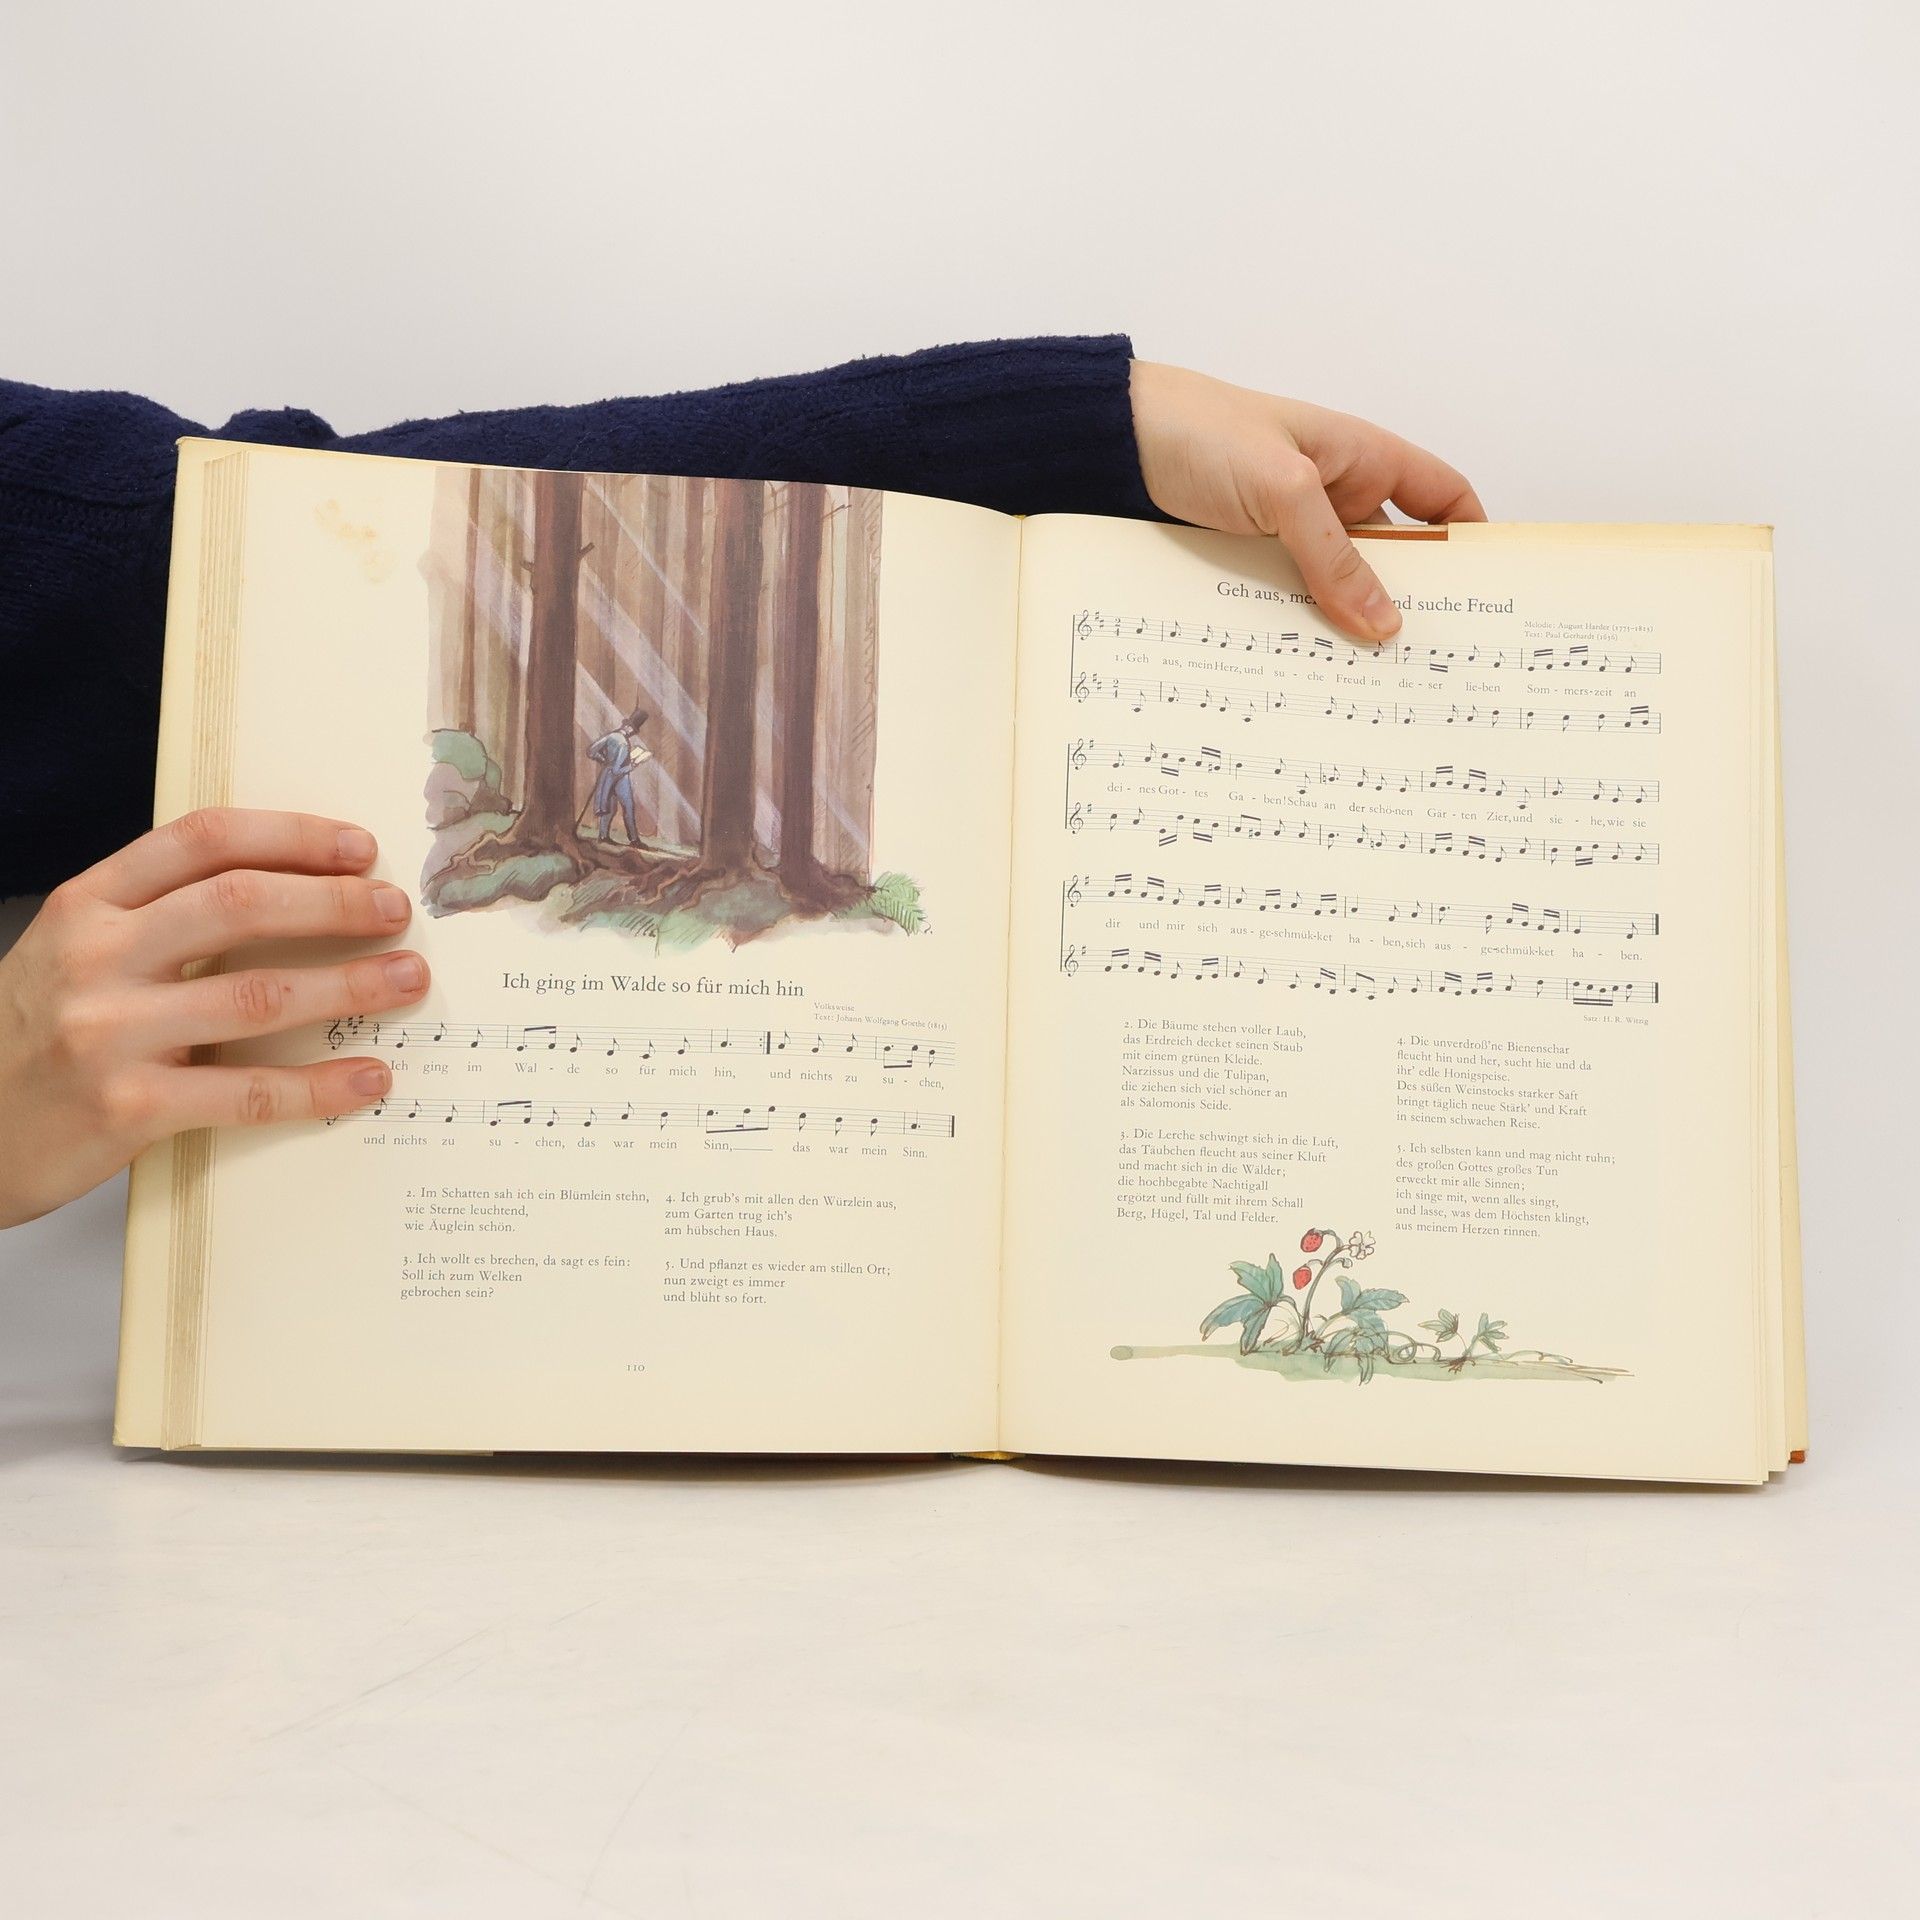 Ich ging im Walde so für mich hin
Volksweise
Text: Johann Wolfgang Goethe (1815)
Ich ging im Wal - de so für mich hin, und nichts zu su - chen,
und nichts zu su - chen, das war mein Sinn, das war mein Sinn.
2. Im Schatten sah ich ein Blümlein stehn,
wie Sterne leuchtend,
wie Äuglein schön.
3. Ich wollt es brechen, da sagt es fein:
Soll ich zum Welken
gebrochen sein?
4. Ich grub's mit allen den Würzlein aus,
zum Garten trug ich's
am hübschen Haus.
5. Und pflanzt es wieder am stillen Ort;
nun zweigt es immer
und blüht so fort.
110
Geh aus, nd suche Freud
Melodie: August Harder (1775–1813)
Text: Paul Gerhardt (1656)
1. Geh aus, mein Herz, und su - che Freud in die - ser lie-ben Som - mers-zeit an
dei - nes Got - tes Ga - ben! Schau an der schö-nen Gär - ten Zier, und sie - he, wie sie
dir und mir sich aus - ge-schmük-ket ha - ben, sich aus - ge-schmük-ket ha - ben.
Satz: H. R. Witzig
2. Die Bäume stehen voller Laub,
das Erdreich decket seinen Staub
mit einem grünen Kleide.
Narzissus und die Tulipan,
die ziehen sich viel schöner an
als Salomonis Seide.
3. Die Lerche schwingt sich in die Luft,
das Täubchen fleucht aus seiner Kluft
und macht sich in die Wälder;
die hochbegabte Nachtigall
ergötzt und füllt mit ihrem Schall
Berg, Hügel, Tal und Felder.
4. Die unverdroß'ne Bienenschar
fleucht hin und her, sucht hie und da
ihr' edle Honigspeise.
Des süßen Weinstocks starker Saft
bringt täglich neue Stärk' und Kraft
in seinem schwachen Reise.
5. Ich selbsten kann und mag nicht ruhn;
des großen Gottes großes Tun
erweckt mir alle Sinnen;
ich singe mit, wenn alles singt,
und lasse, was dem Höchsten klingt,
aus meinem Herzen rinnen.